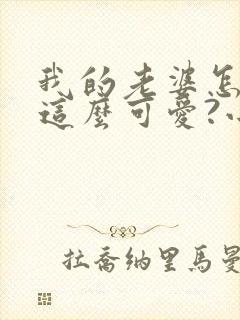 我的老婆怎
這麼可愛?
拉喬納里馬曼